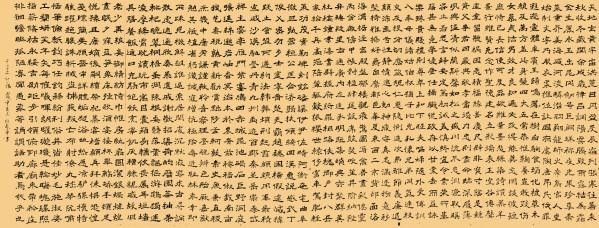 天地玄黃宇宙洪荒日月盈昃辰宿列張寒來暑往
秋收冬藏閏餘成歲律呂調陽雲騰致雨露結為霜
金生麗水玉出崑岡劍號巨闕珠稱夜光果珍李柰
菜重芥薑海鹹河淡鱗潛羽翔龍師火帝鳥官人皇
始制文字乃服衣裳推位讓國有虞陶唐弔民伐罪
周發殷湯坐朝問道垂拱平章愛育黎首臣伏戎羌
遐邇壹體率賓歸王鳴鳳在樹白駒食場化被草木
賴及萬方蓋此身髮四大五常恭惟鞠養豈敢毀傷
女慕貞潔男效才良知過必改得能莫忘罔談彼短
靡恃己長信使可覆器欲難量墨悲絲染詩讚羔羊
景行維賢克念作聖德建名立形端表正空谷傳聲
虛堂習聽禍因惡積福緣善慶尺璧非寶寸陰是競
資父事君曰嚴與敬孝當竭力忠則盡命臨深履薄
夙興溫凊似蘭斯馨如松之盛川流不息淵澄取映
容止若思言辭安定篤初誠美慎終宜令榮業所基
籍甚無竟學優登仕攝職從政存以甘棠去而益詠
樂殊貴賤禮別尊卑上和下睦夫唱婦隨外受傅訓
入奉母儀諸姑伯叔猶子比兒孔懷兄弟同氣連枝
交友投分切磨箴規仁慈隱惻造次弗離節義廉退
顛沛匪虧性靜情逸心動神疲守真志滿逐物意移
堅持雅操好爵自縻都邑華夏東西二京背邙面洛
浮渭據涇宮殿盤鬱樓觀飛驚圖寫禽獸畫彩仙靈
丙舍傍啟甲帳對楹肆筵設席鼓瑟吹笙升階納陛
弁轉疑星右通廣內左達承明既集墳典亦聚群英
杜稿鍾隸漆書壁經府羅將相路俠槐卿戶封八縣
家給千兵高冠陪輦驅轂振纓世祿侈富車駕肥輕
策功茂實勒碑刻銘磻溪伊尹佐時阿衡奄宅曲阜
微旦孰營桓公匡合濟弱扶傾綺回漢惠說感武丁
俊乂密勿多士寔寧晉楚更霸趙魏困橫假途滅虢
踐土會盟何遵約法韓弊煩刑起翦頗牧用軍最精
宣威沙漠馳譽丹青九州禹跡百郡秦并嶽宗泰岱
禪主云亭雁門紫塞雞田赤城昆池碣石鉅野洞庭
曠遠綿邈巖岫杳冥治本於農務茲稼穡俶載南畝
我藝黍稷稅熟貢新勸賞黜陟孟軻敦素史魚秉直
庶幾中庸勞謙謹敕聆音察理鑒貌辨色貽厥嘉猷
勉其祗植省躬譏誡寵增抗極殆辱近恥林皋幸即
兩疏見機解組誰逼索居閒處沉默寂寥求古尋論
散慮逍遙欣奏累遣慼謝歡招渠荷的歷園莽抽條
枇杷晚翠梧桐早凋陳根委翳落葉飄颻遊鵾獨運
凌摩絳霄耽讀翫市寓目囊箱易輶攸畏屬耳垣牆
具膳餐飯適口充腸飽飫烹宰飢厭糟糠親戚故舊
老少異糧妾御績紡侍巾帷房紈扇圓潔銀燭煒煌
晝眠夕寐藍筍象床弦歌酒宴接杯舉觴矯手頓足
悅豫且康嫡後嗣續祭祀烝嘗稽顙再拜悚懼恐惶
箋牒簡要顧答審詳骸垢想浴執熱願涼驢騾犢特
駭躍超驤誅斬賊盜捕獲叛亡布射遼丸嵇琴阮嘯
恬筆倫紙鈞巧任釣釋紛利俗並皆佳妙毛施淑姿
工顰妍笑年矢每催曦暉朗曜璇璣懸斡晦魄環照
指薪修祜永綏吉劭矩步引領俯仰廊廟束帶矜莊
徘徊瞻眺孤陋寡聞愚蒙等誚謂語助者焉哉乎也